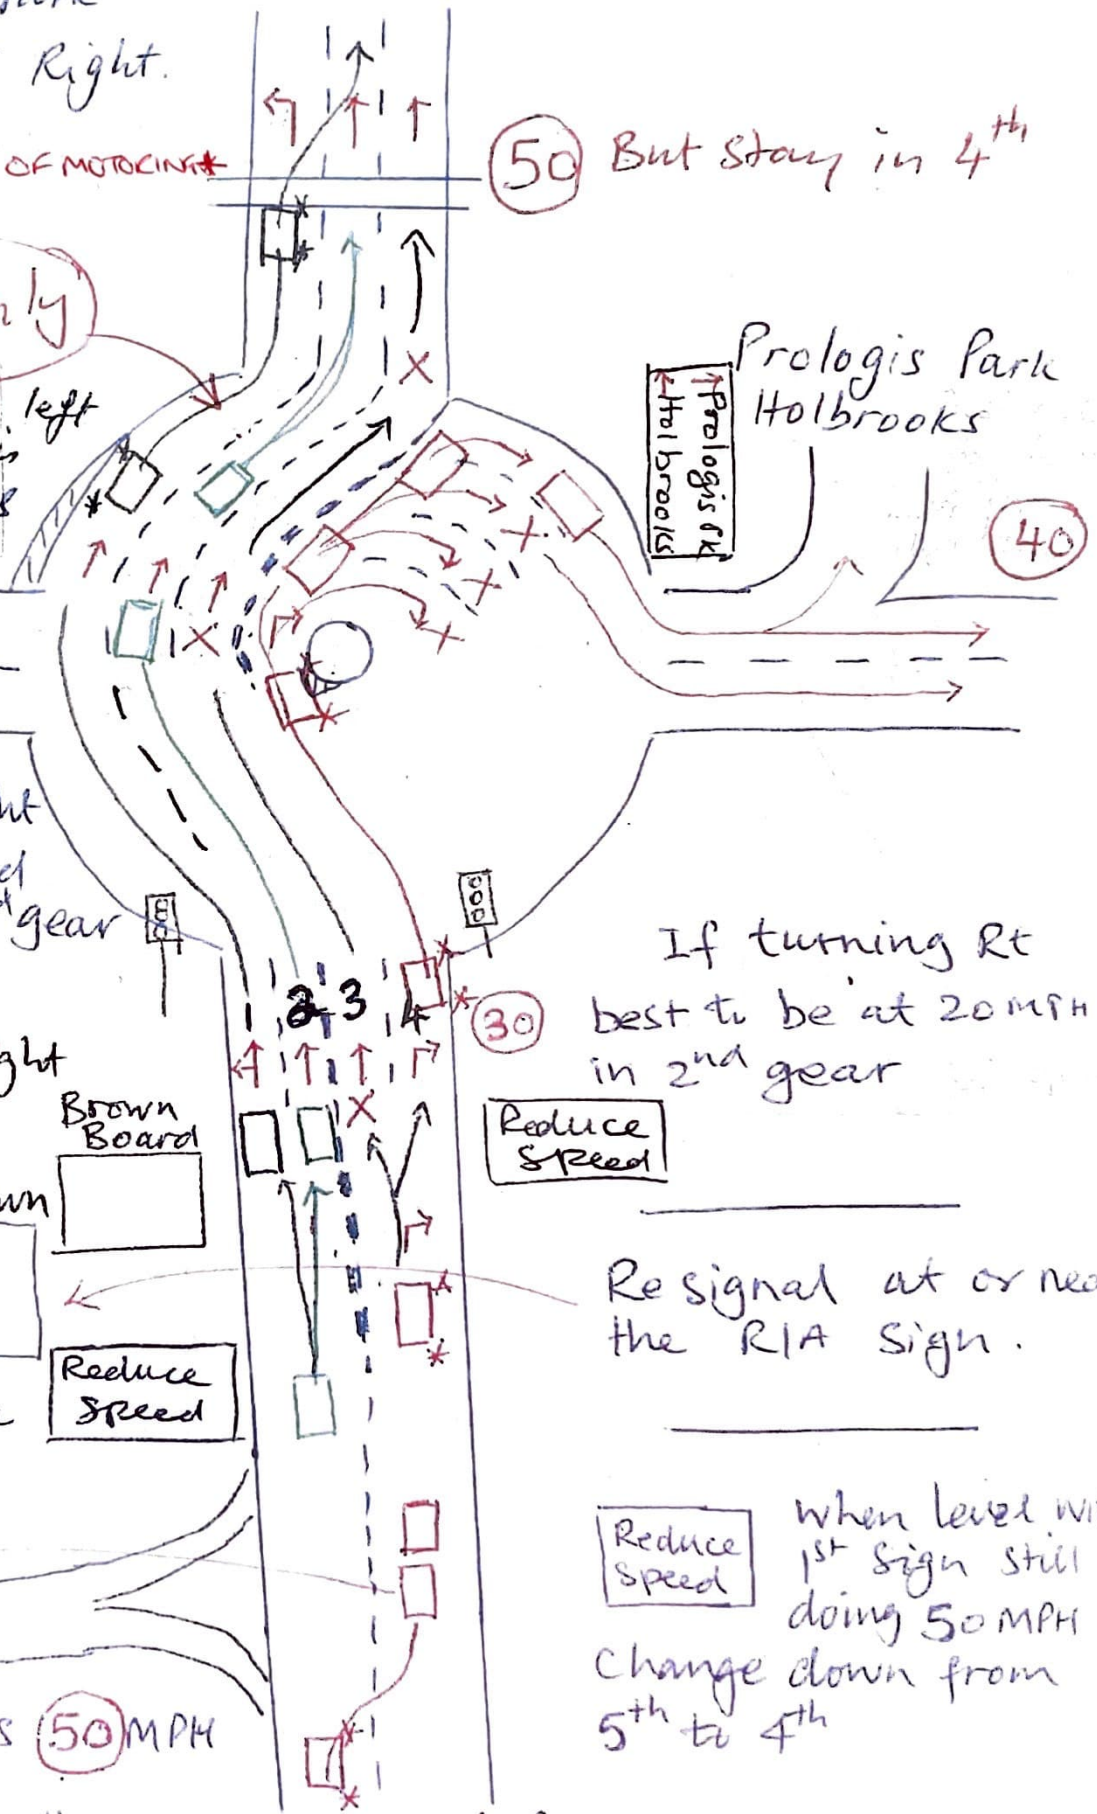 Right.
OF MOTORING*
50 But stay in 4th
ly
left
Prologis Park
Holbrooks
Prologis Pk
Holbrooks
40
ht
d
gear
If turning Rt
best to be at 20 MPH
in 2nd gear
2 3 4
30
ght
Brown
Board
Reduce
Speed
wn
Resignal at or nea
the R/A Sign.
Reduce
Speed
Reduce
Speed
When level wi
1st Sign still
doing 50 MPH
Change down from
5th to 4th
s 50 MPH